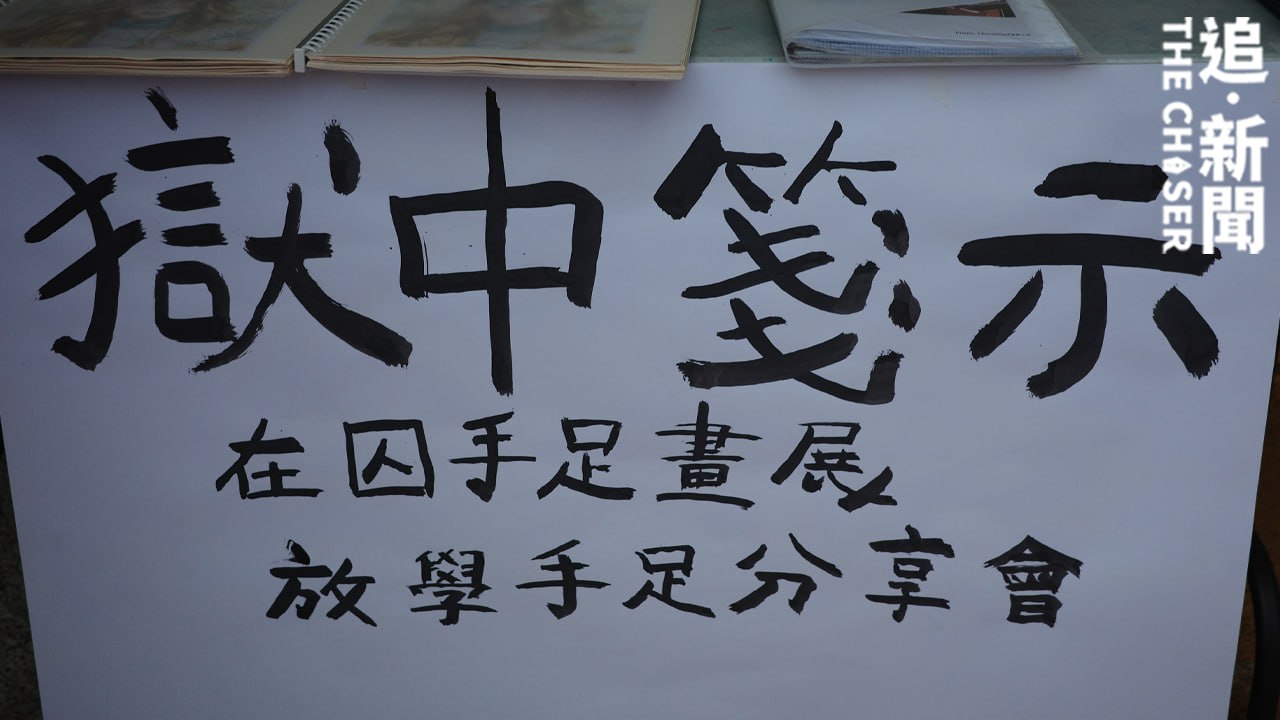 獄中箋示
在囚手足畫展
放學手足分享會
追·新聞
THE CHASER